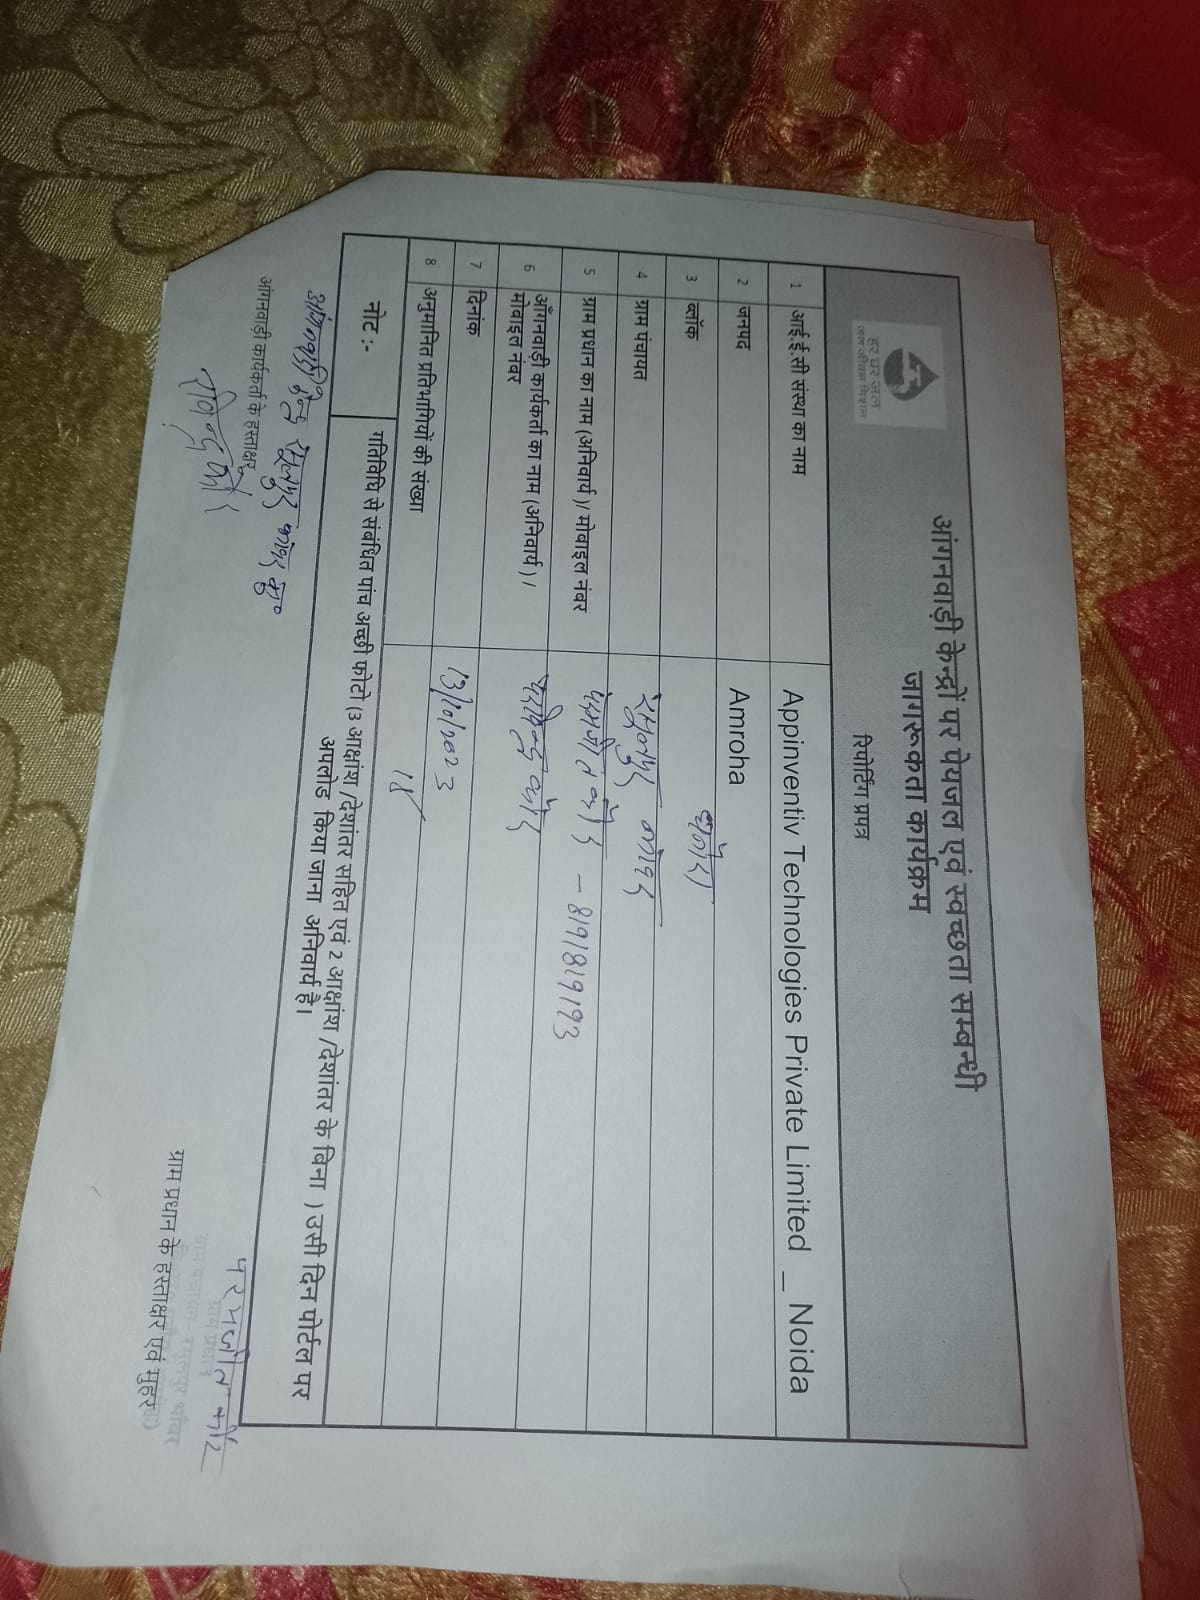 हर घर जल
जल जीवन मिशन
आंगनवाड़ी केन्द्रों पर पेयजल एवं स्वच्छता सम्बन्धी
जागरूकता कार्यक्रम
रिपोर्टिंग प्रपत्र
1 आई.ई.सी संस्था का नाम Appinventiv Technologies Private Limited _ Noida
2 जनपद Amroha
3 ब्लॉक
4 ग्राम पंचायत रसुलपुर
5 ग्राम प्रधान का नाम (अनिवार्य)/ मोबाइल नंबर परमजीत कौर – 8191819193
6 आँगनवाड़ी कार्यकर्ता का नाम (अनिवार्य) /
मोबाइल नंबर
7 दिनांक 13/10/2023
8 अनुमानित प्रतिभागियों की संख्या
नोट :- गतिविधि से संबंधित पांच अच्छी फोटो (3 आक्षांश /देशांतर सहित एवं 2 आक्षांश /देशांतर के बिना ) उसी दिन पोर्टल पर
अपलोड किया जाना अनिवार्य है।
आंगनवाड़ी कार्यकर्ता के हस्ताक्षर
परमजीत कौर
ग्राम प्रधान
ग्राम प्रधान के हस्ताक्षर एवं मुहर